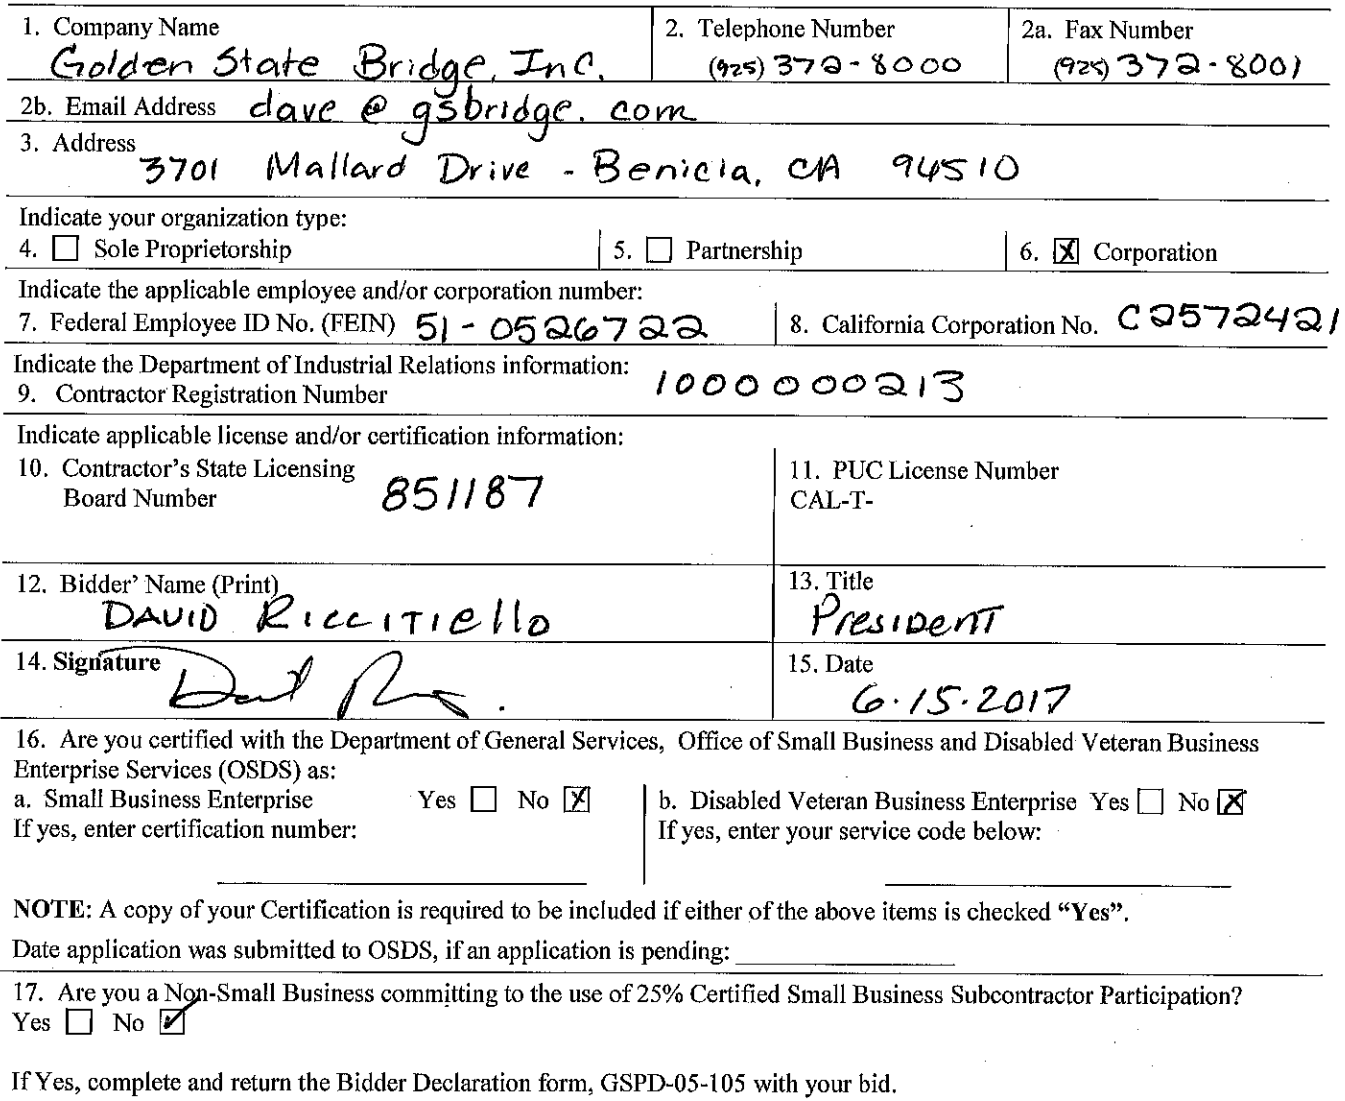 1. Company Name 2. Telephone Number 2a. Fax Number
Golden State Bridge, Inc. (925) 372-8000 (925) 372-8001
2b. Email Address dave@gsbridge.com
3. Address
3701 Mallard Drive - Benicia, CA 94510
Indicate your organization type:
4. ☐ Sole Proprietorship 5. ☐ Partnership 6. ☒ Corporation
Indicate the applicable employee and/or corporation number:
7. Federal Employee ID No. (FEIN) 51-0526722 8. California Corporation No. C2572421
Indicate the Department of Industrial Relations information:
9. Contractor Registration Number 1000000213
Indicate applicable license and/or certification information:
10. Contractor's State Licensing 11. PUC License Number
Board Number 851187 CAL-T-
12. Bidder' Name (Print) 13. Title
DAVID Riccitiello President
14. Signature 15. Date
6.15.2017
16. Are you certified with the Department of General Services, Office of Small Business and Disabled Veteran Business
Enterprise Services (OSDS) as:
a. Small Business Enterprise Yes ☐ No ☒ b. Disabled Veteran Business Enterprise Yes ☐ No ☒
If yes, enter certification number: If yes, enter your service code below:
NOTE: A copy of your Certification is required to be included if either of the above items is checked “Yes”.
Date application was submitted to OSDS, if an application is pending:
17. Are you a Non-Small Business committing to the use of 25% Certified Small Business Subcontractor Participation?
Yes ☐ No ☑
If Yes, complete and return the Bidder Declaration form, GSPD-05-105 with your bid.